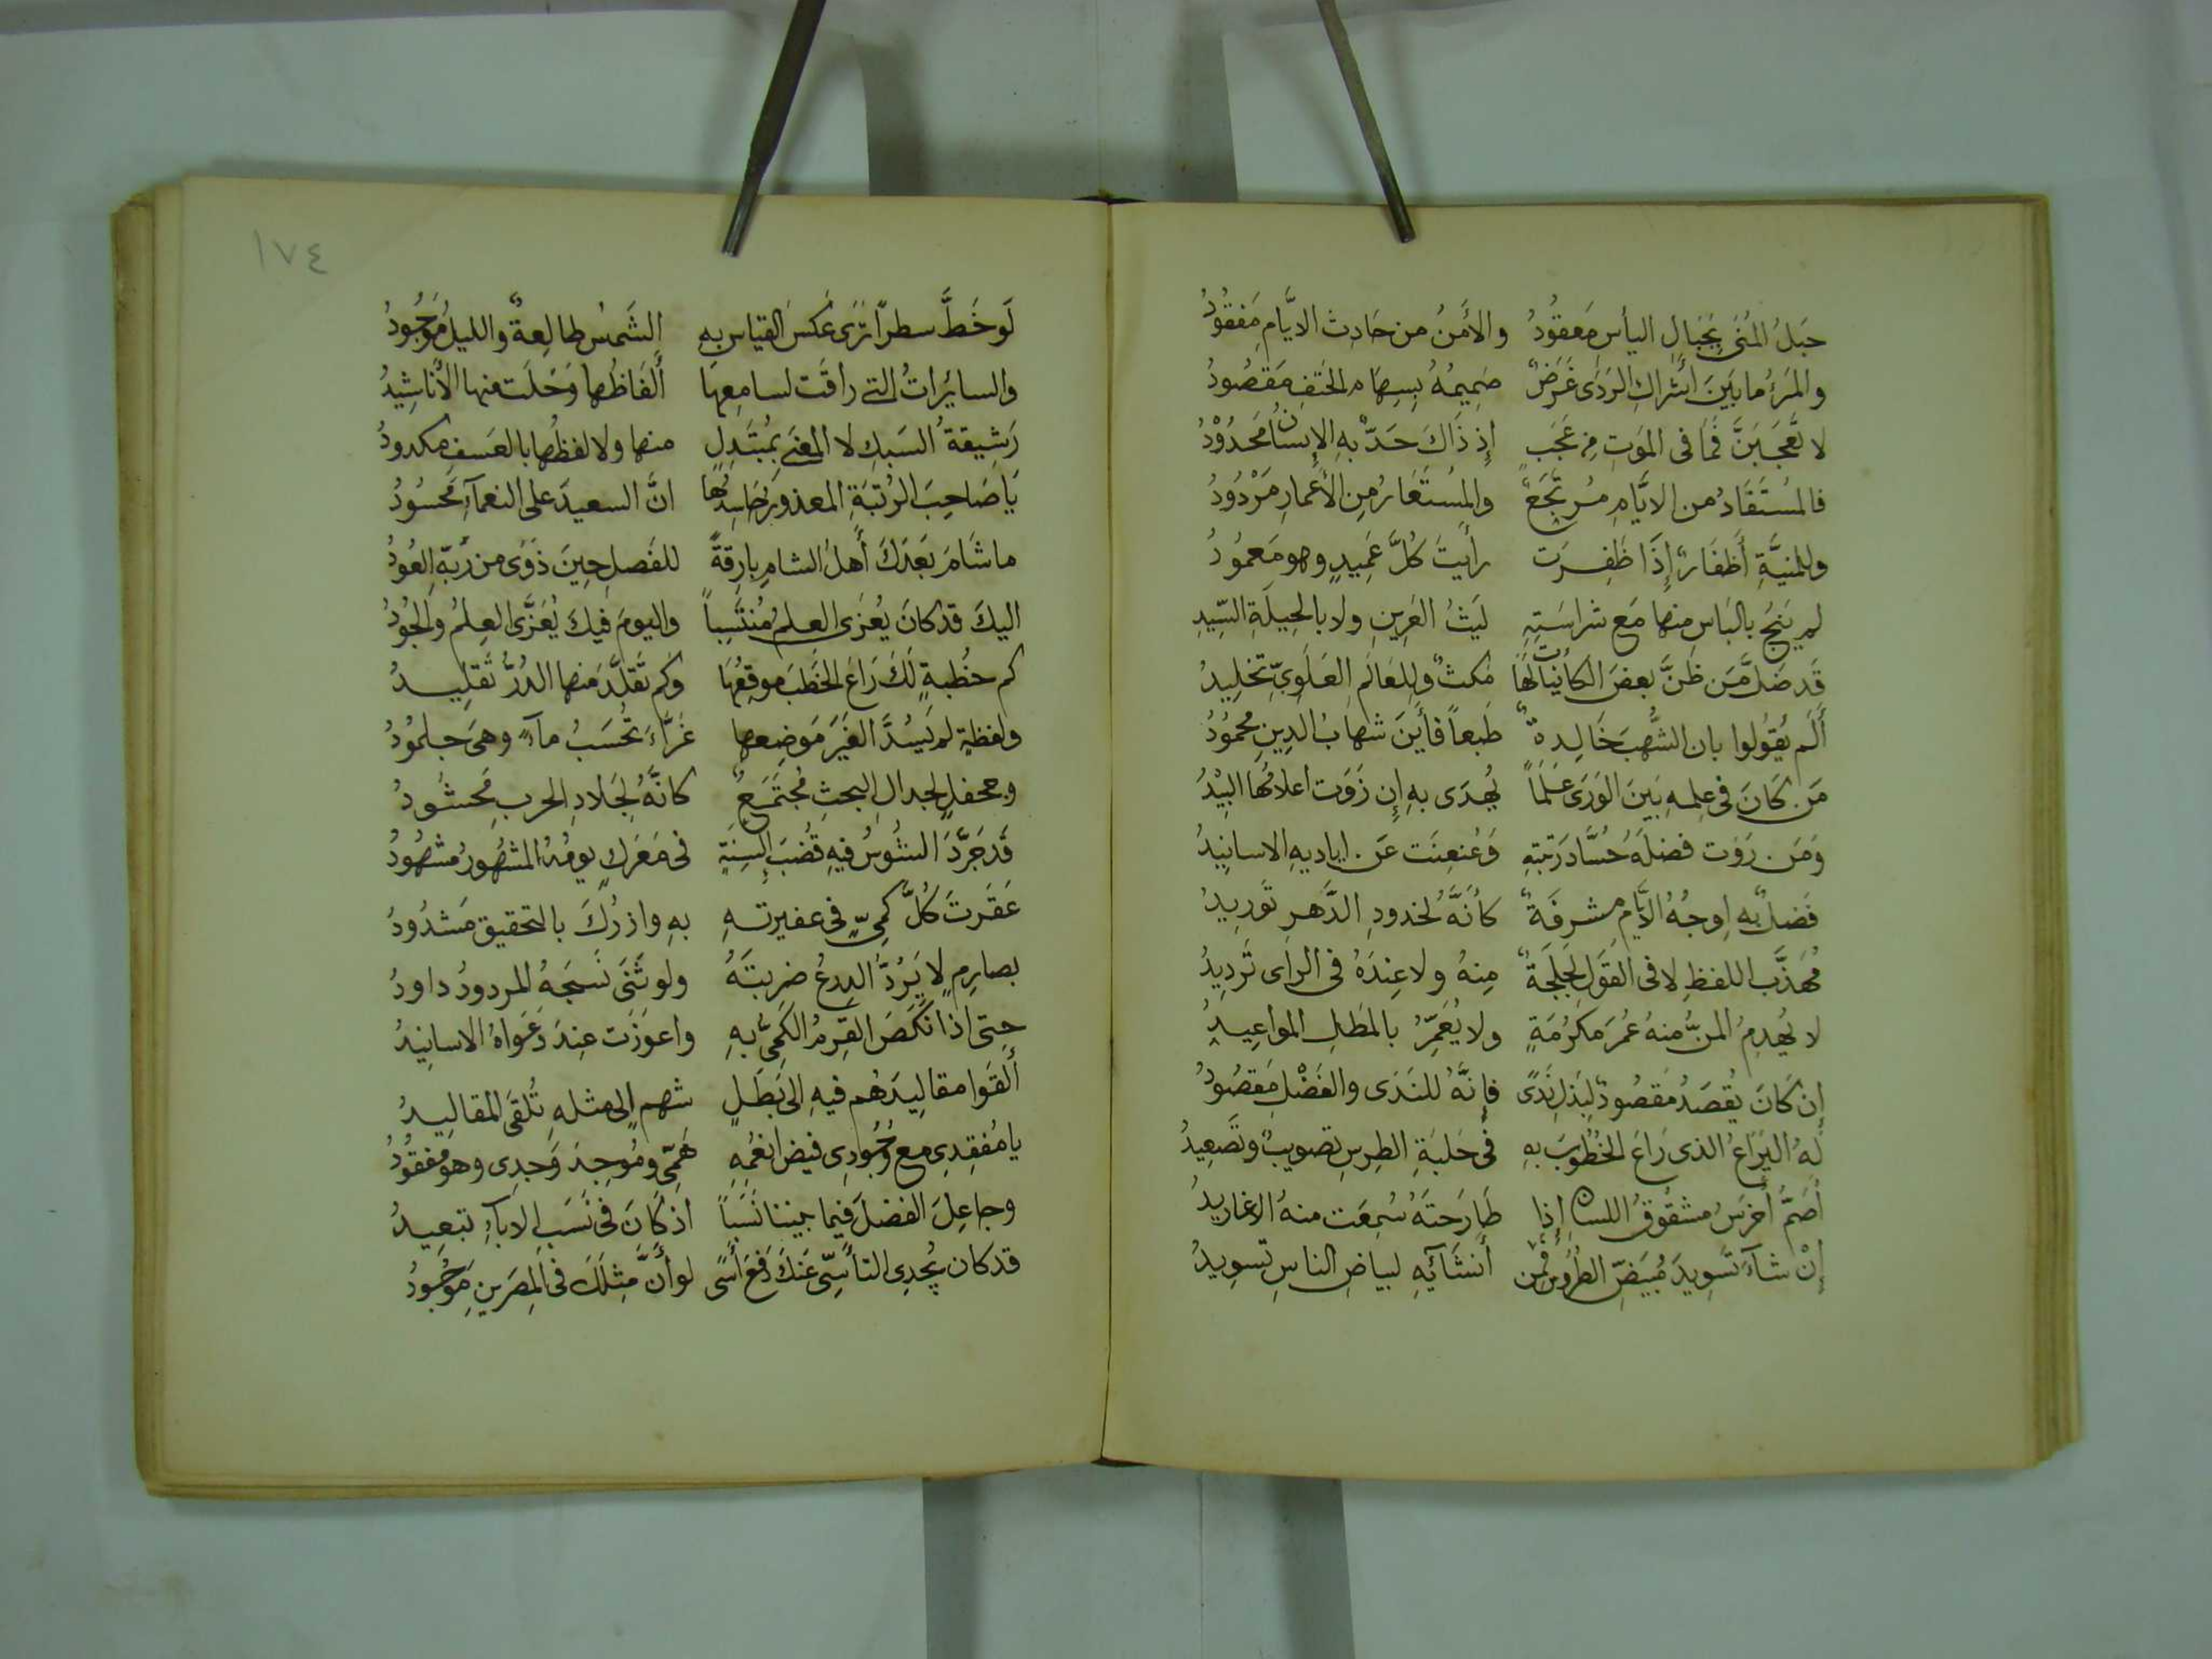 حَبلُ المُنَى بِحِبَالِ اليأسِ مَعقُودُ والأَمنُ من حَادِثِ الايَّامِ مَفقُودُ
والمَرءُ ما بَينَ أَشراكِ الرَدَى غَرَضٌ صَمِيمُهُ بِسِهَامِ الحَتفِ مَقصُودُ
لا تَعجَبَنَّ فَمَا فى المَوتِ مِن عَجَبٍ إِذ ذَاكَ حَدٌّ بهِ الإِنسانُ مَحدُوْدُ
فالمُستَفَادُ من الايَّامِ مُرتَجَعٌ والمُستَعَارُ مِنِ الأَعمارِ مَرْدُودُ
وللمنيَّةِ أَظفَارٌ إِذَا ظَفِرَت رأَيتَ كُلَّ عَمِيدٍ وهو مَعمُودُ
لم يَنجُ بالبَاسِ منها مَع شراسَتِهِ لَيثُ العَرِينِ ولا بالحِيلَةِ السِّيدِ
قَد ضَلَّ مَن ظَنَّ بعضَ الكائنات لَهَا مَكثٌ وللعَالَمِ العَلَوِىِّ تَخلِيدُ
أَلَم يَقُولُوا بان الشُّهبَ خَالِدةٌ طَبعاً فأَينَ شهابُ الدِينِ محمُودُ
مَن كَانَ فى عِلمِهِ بَينَ الوَرَى عَلَماً يُهدَى بهِ إِن زَوَت اعلامُها البِيْدُ
وَمَن رَوَت فضلَهُ حُسَّادُ رَتبتهِ وَعَنعنَت عَن اياديهِ الاسانِيدُ
فَضلٌ بهِ اوجُهُ الايَّامِ مشرقَةٌ كأنَّهُ لخدودِ الدَّهرِ تَورِيدُ
مُهَذَّب اللفظِ لا فى القَولِ لَجلَجَةٌ مِنهُ ولا عِندَهُ فى الراى تَردِيدُ
لا يَهدِمُ المنُّ منهُ عُمرَ مَكرُمَةٍ ولا يُعَمِّرُ بالمَطلِ المواعِيدُ
إِن كَانَ يُقصَدُ مَقصُودٌ لِبَذلِ نَدًى فإِنَّهُ للنَدَى والفَضْلِ مَقصُودُ
لَهُ اليَرَاعُ الذى رَاعَ الخُطُوبَ بهِ فى حَلبَةِ الطِرسِ تصويبٌ وتَصعِيدُ
أَصَمُّ أَخرَسُ مشقُوقُ اللسانِ إِذا طَارَحتَهُ سُمِعَت منهُ الاغاريدُ
إِنْ شآءَ تَسوِيدَ مُبيَضِّ الطُرُوسِ فمن أَنشَآئِهِ لبياضِ الناسِ تسوِيدُ
١٧٤
لَو خَطَّ سطراً تَرَى عَكسَ القياسِ بهِ الشَمسُ طالِعةٌ والليلُ مَوجُودُ
والسايرَاتُ التى راقَت لسامِعِها أَلفَاظُها وَحَلَت منها الأَناشِيدُ
رَشِيقةُ السَبكِ لا المعْنَى بِمُبتَذَلٍ منها ولا لفظُها بالعَسفِ مكدودُ
يَا صَاحِبَ الرُتبَةِ المعذورِ حَاسِدُها انَّ السعيدَ على النعمآءِ مَحسُودُ
ما شَامَ بَعدَكَ أَهلُ الشامِ بارِقةً للفَصلِ حِينَ ذَوَى من رُبّهِ العُودُ
اليكَ قد كانَ يُعزَى العِلمُ مُنتَسِباً واليومَ فيكَ يُعَزَّى العِلمُ والجُودُ
كم خُطبةٍ لَكَ رَاعَ الخَطبَ موقِعُهَا وَكم تَقَلَّدَ منها الدُرُّ تَقلِيدُ
ولفظةٍ لم يَسُدَّ الغَيرَ مَوضِعها غَرَّاءَ تُحسَبُ مآءً وهىَ جلمُودُ
وجحفلٍ لجدالِ البحثِ مُجتَمِعٌ كانَّهُ لجَلادِ الحربِ مَحشُودُ
قَد جَرَّدَ الشُوسُ فيهِ قُضبَ أَلسِنَةٍ فى مَعرَكٍ يومُهُ المشهُورُ مشهُودُ
عَقَرتَ كُلَّ كَمِىٍّ فى عفيرتهِ بهِ وازرُكَ بالتحقيق مَشدُودُ
بصارمٍ لا يَرُدُّ الدِرعُ ضرِبتَهُ ولو ثَنَى نَسجَهُ المردودُ داودُ
حتى اذا نَكَصَ القِرمُ الكَمِىُّ بهِ واعوَزَت عِندَ دَعوَاهُ الاسانِيدُ
أَلقَوا مقالِيدَهُم فيهِ الى بَطَلٍ شهمٍ الى مثلهِ تُلقَى المقالِيدُ
يا مُفقِدِى مع وُجُودِى فيضَ انعُمِهِ هَمِّى ومُوجِدَ وَجدِى وهو مفقُودُ
وجاعِلَ الفضلَ فيما بيننا نَسَباً اذ كَانَ فى نَسَبِ الابآءِ تبعِيدُ
قد كان يُجدِى التأَسِّى عَنكَ دَفعَ أَسًى لو أَنَّ مِثلَكَ فى المِصرَينِ مَوجُودُ